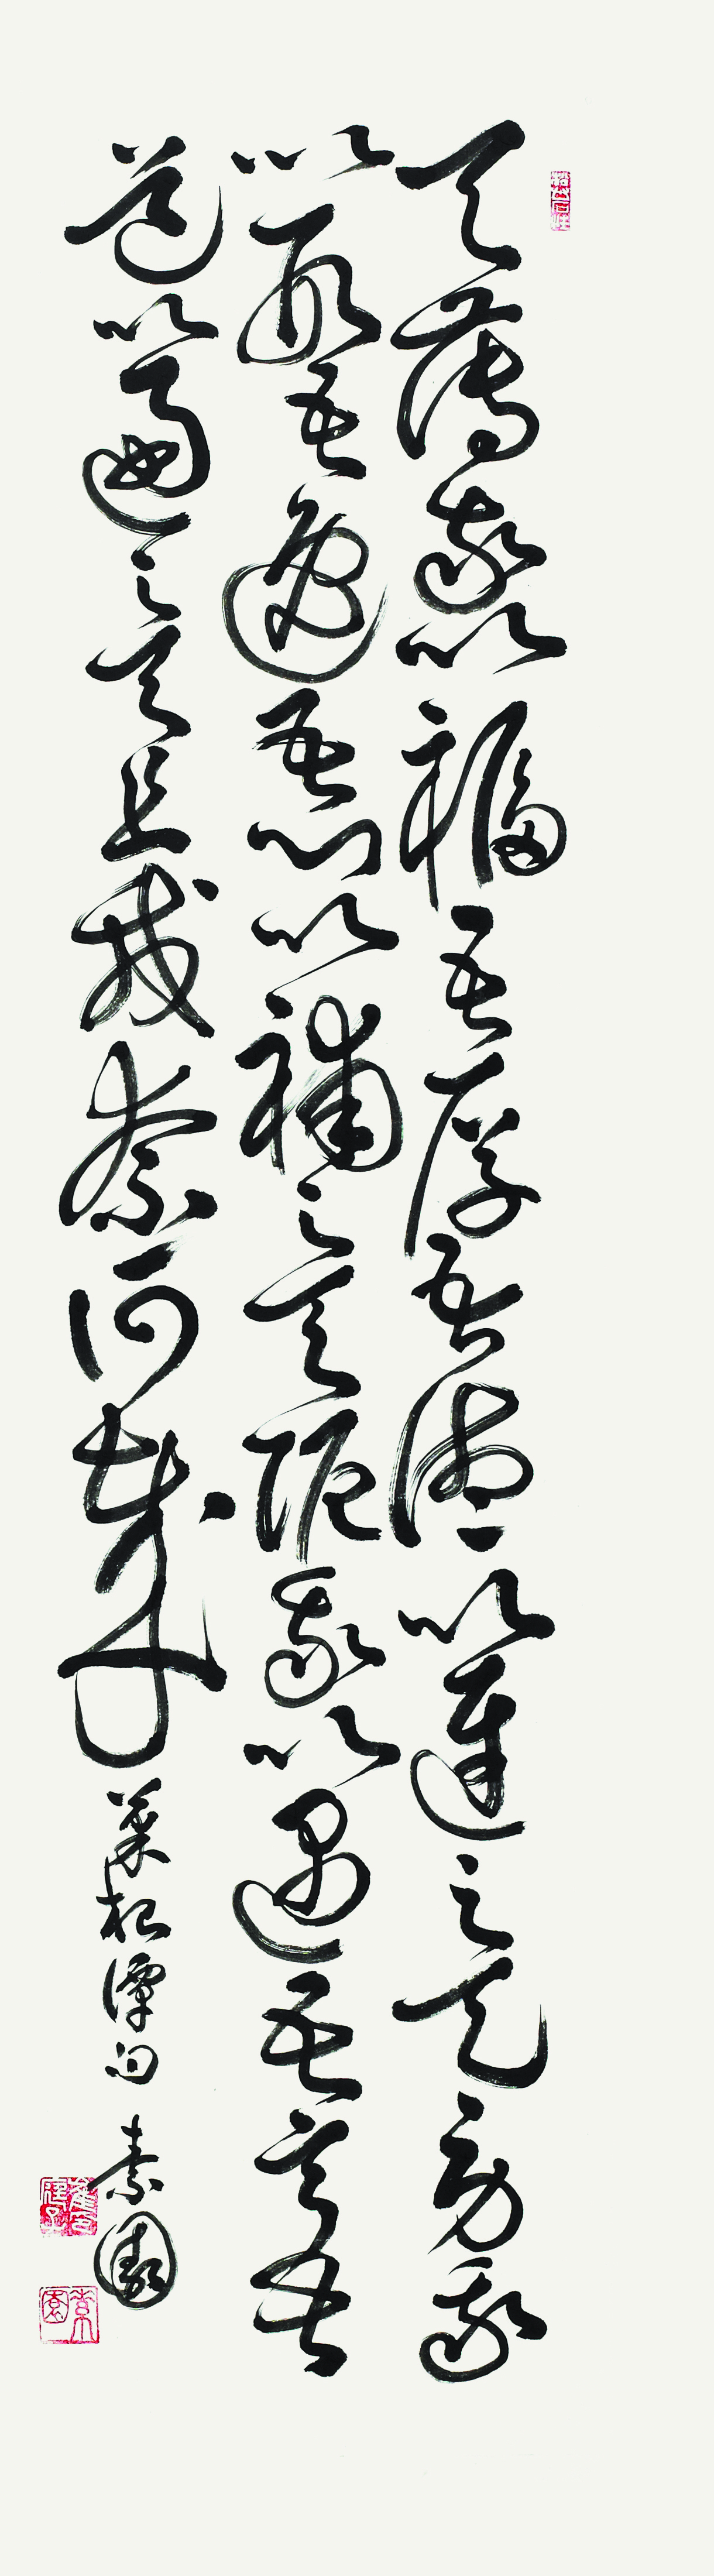 天薄我以福吾厚吾德以迓之天勞我
以形吾逸吾心以補之天阨我以遇吾亨吾
道以通之天且我奈何哉
菜根譚句 素園
素園